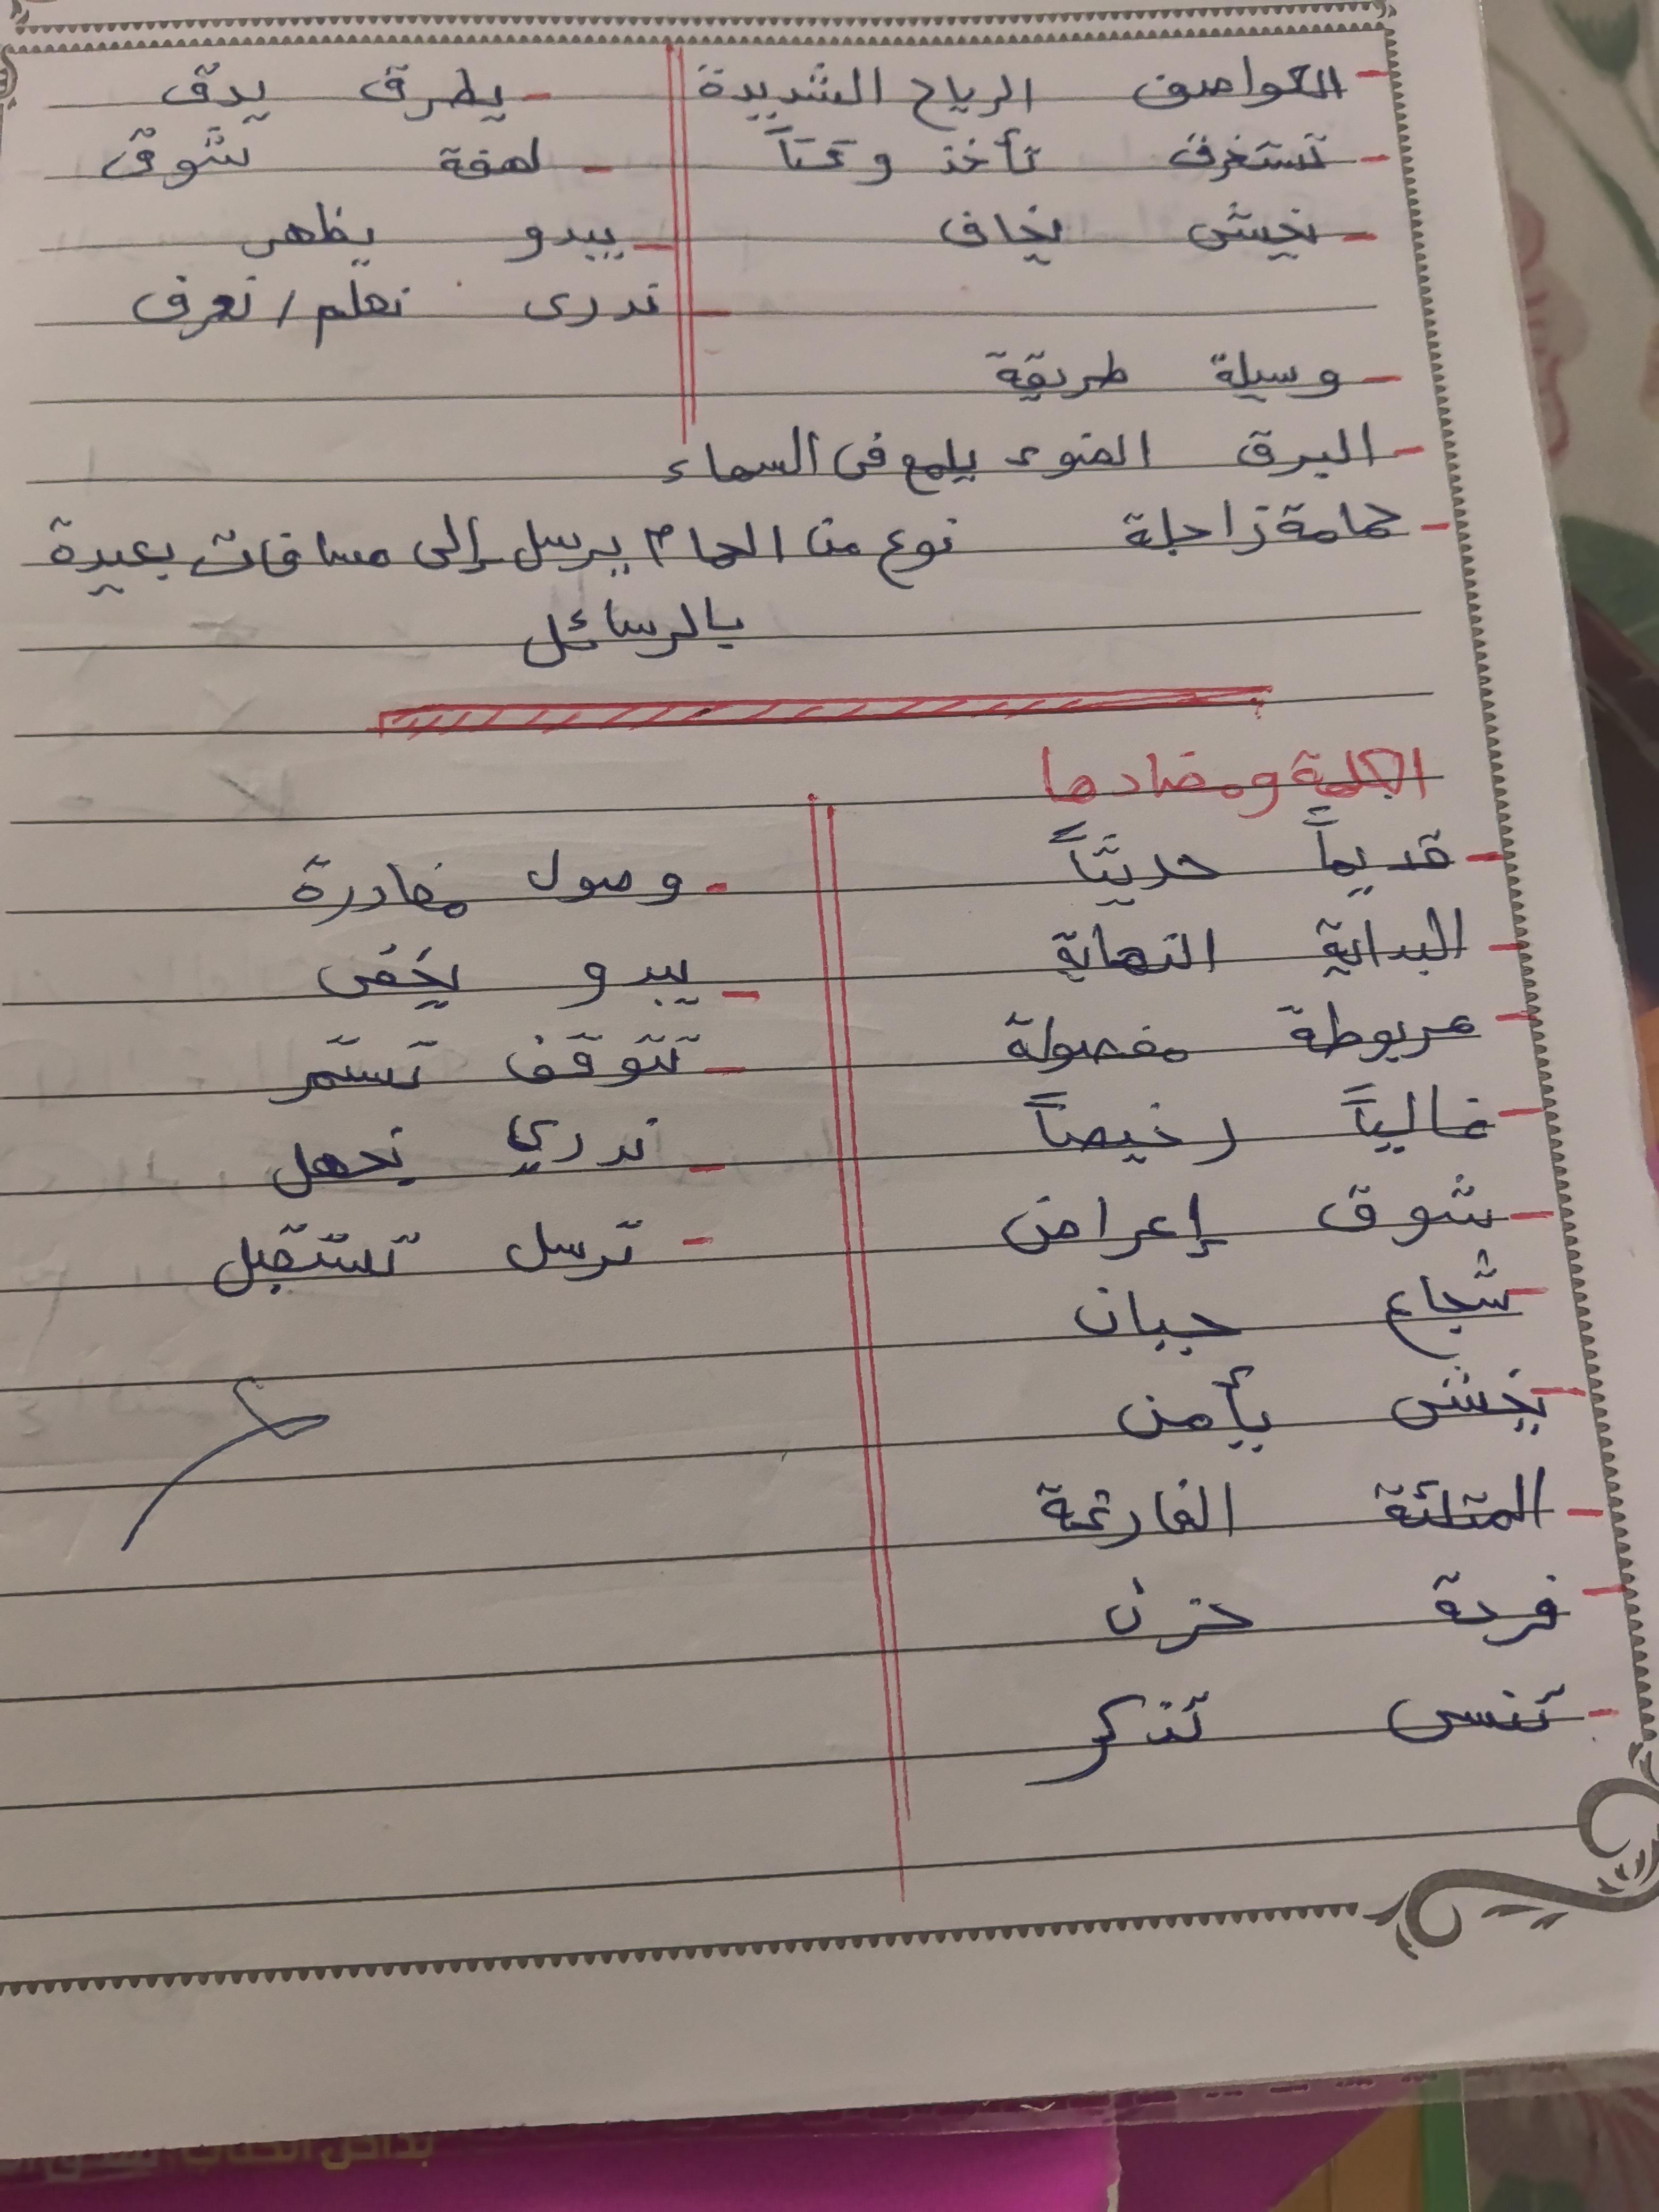 - العواصف الرياح الشديدة
- تستغرق تأخذ وقتاً
- يخشى يخاف
- يطرق يدق
- لهفة شوق
- يبدو يظهر
- ندرى نعلم / نعرف
- وسيلة طريقة
- البرق الضوء يلمع فى السماء
- حمامة زاجلة نوع من الحمام يرسل إلى مسافات بعيدة
بالرسائل
الكلمة ومضادها
- قديماً حديثاً
- البداية النهاية
- مربوطة مفصولة
- غالياً رخيصاً
- شوق إعراض
- شجاع جبان
- يخشى يأمن
- الممتلئة الفارغة
- فرحة حزن
- تنسى تذكر
- وصول مغادرة
- يبدو يخفى
- تتوقف تستمر
- ندري نجهل
- ترسل تستقبل